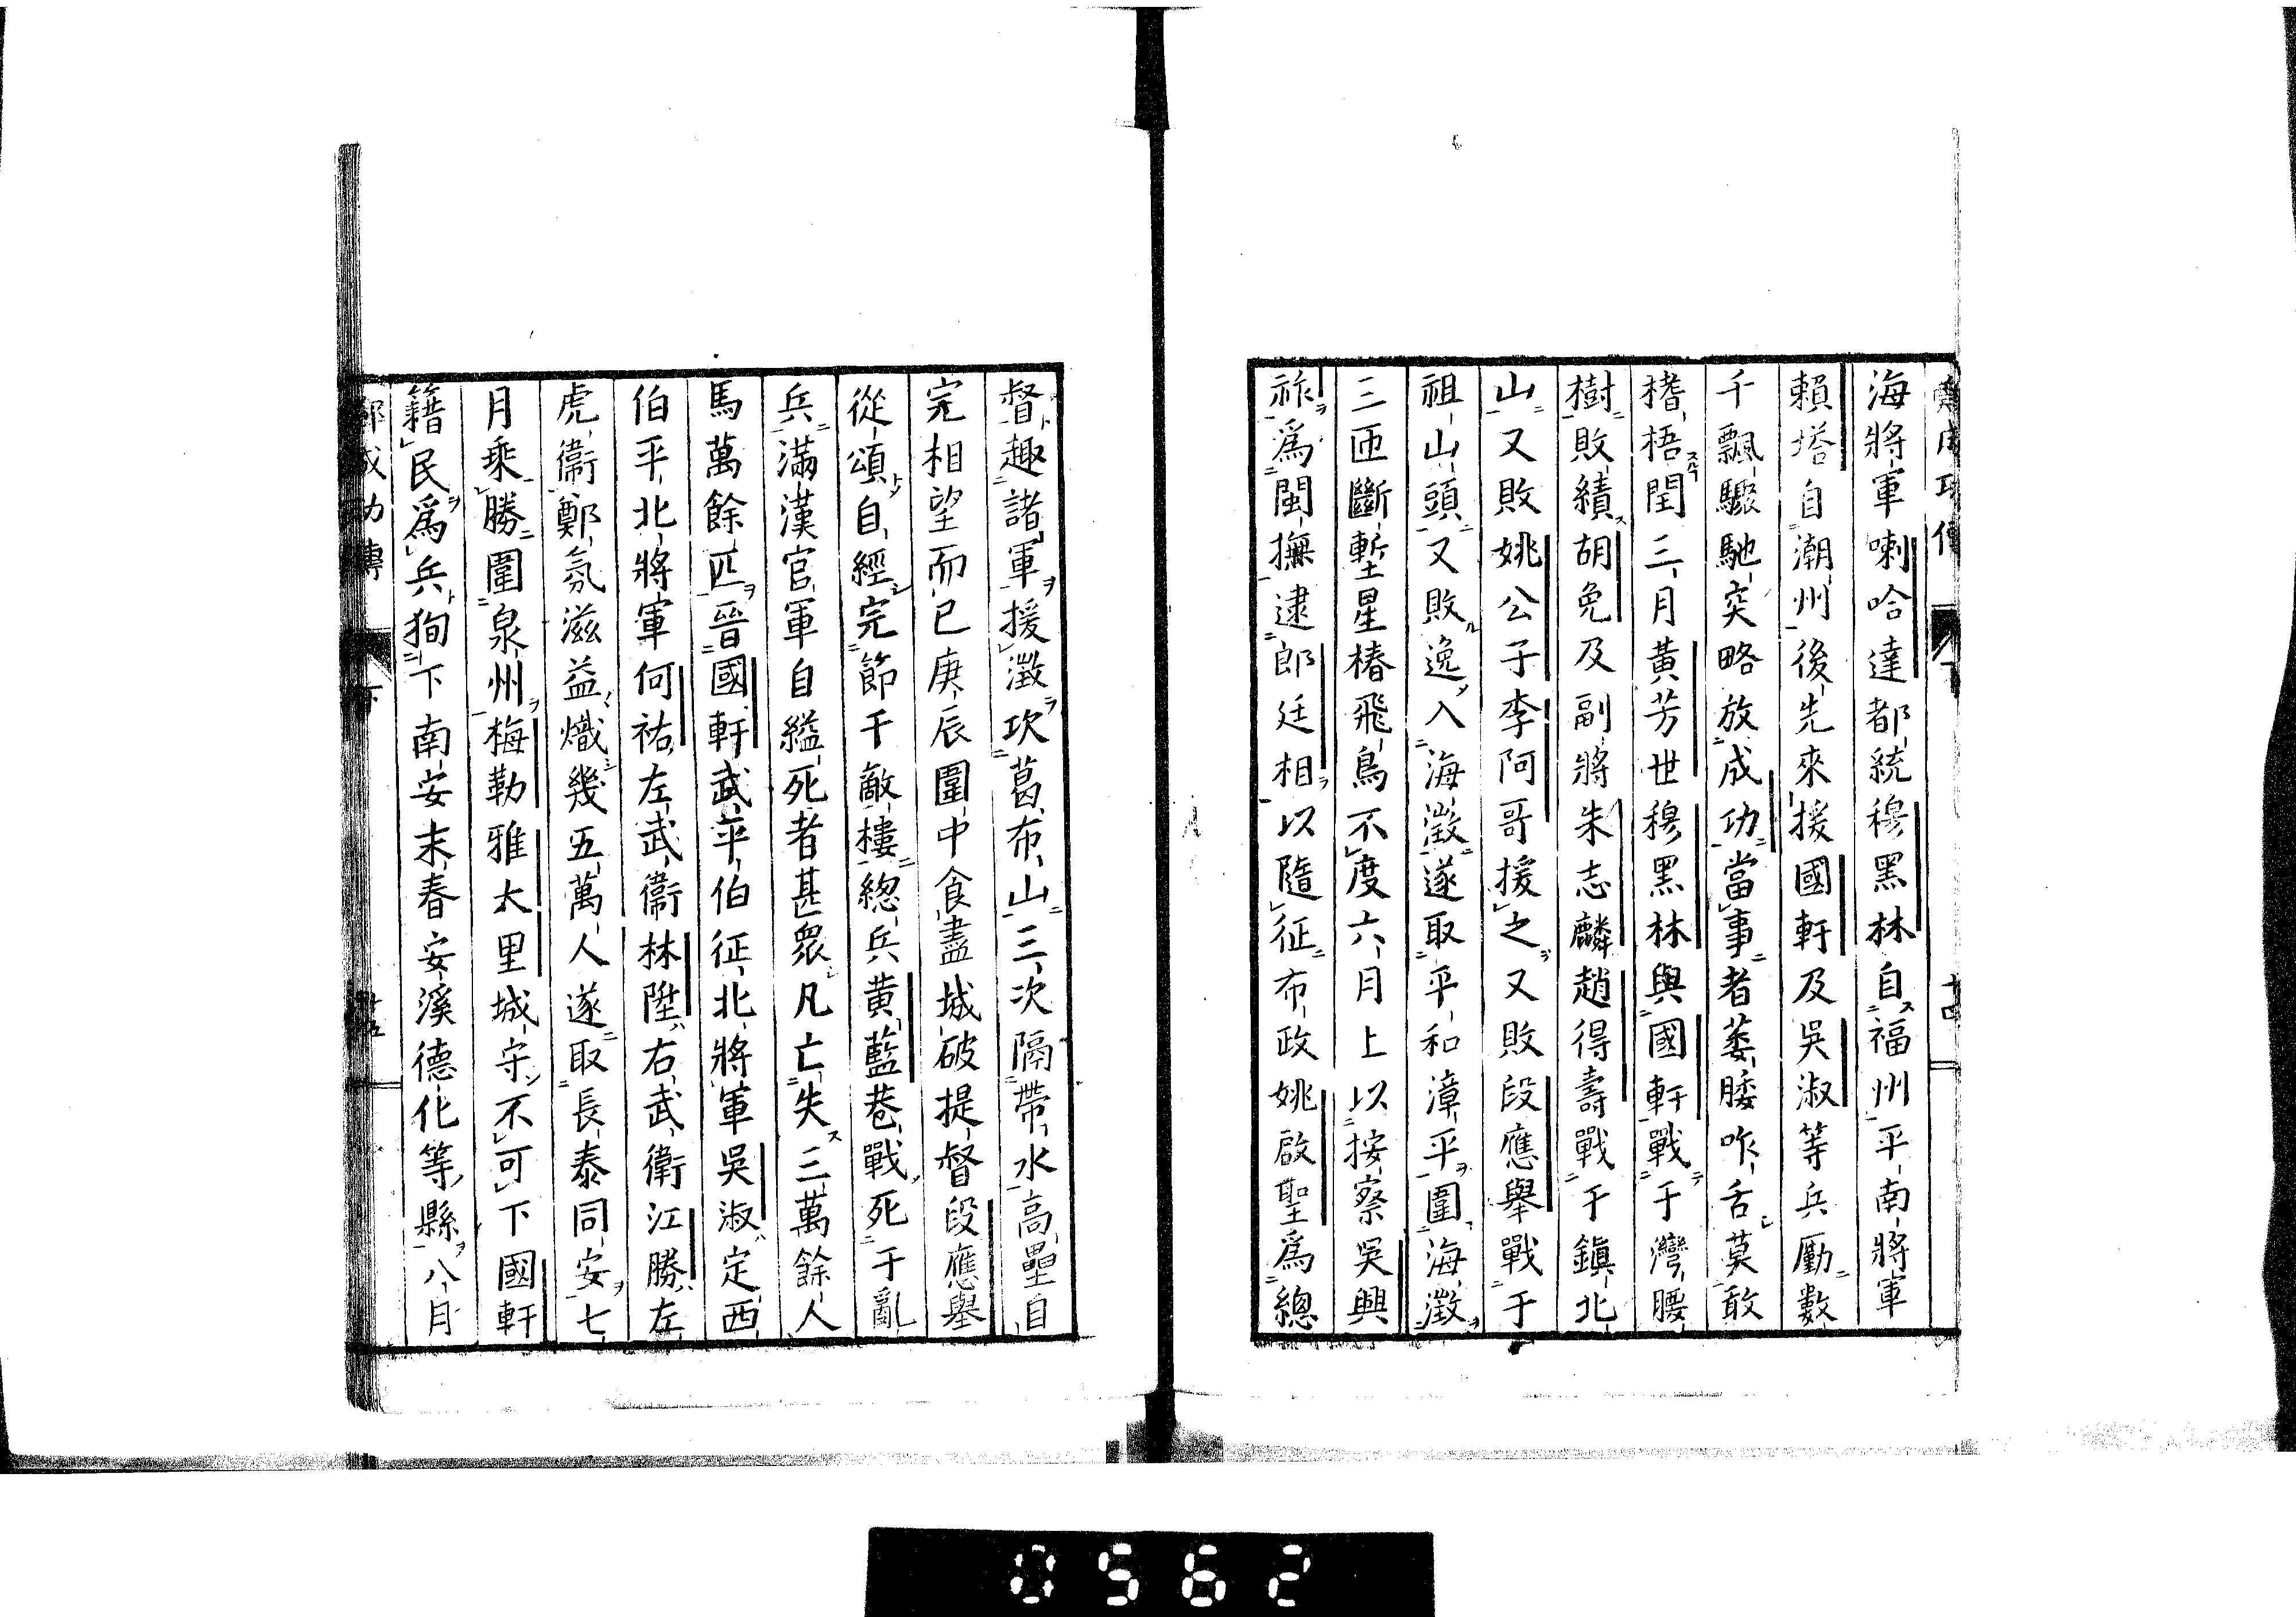 海將軍喇哈達都統穆黑林自福州平南將軍
賴塔自潮州後先來援國軒及吳淑等兵勵數
千飄驟馳突略放成功當事者萎腰咋舌莫敢
楮梧閏三月黃芳世穆黑林與國軒戰于灣腰
樹敗績胡免及副將朱志麟趙得壽戰于鎭北
山又敗姚公子李阿哥援之又敗段應舉戰于
祖山頭又敗逸入海澂遂取平和漳平圍海澂
三匝斷塹星椿飛鳥不度六月上以按察吳興
祚爲閩撫逮郎廷相以隨征布政姚啟聖爲總
督趣諸軍援澂次葛布山三次隔帶水高壘自
完相望而已庚辰圍中食盡城破提督段應舉
從頌自經完節于敵樓總兵黃藍巷戰死于亂
兵滿漢官軍自縊死者甚眾凡亡失三萬餘人
馬萬餘匹晉國軒武平伯征北將軍吳淑定西
伯平北將軍何祐左武衞林陞右武衛江勝左
虎衞鄭氛滋益熾幾五萬人遂取長泰同安七
月乘勝圍泉州梅勒雅大里城守不可下國軒
籍民爲兵狥下南安末春安溪德化等縣八月
鄭成功傳
下
0562